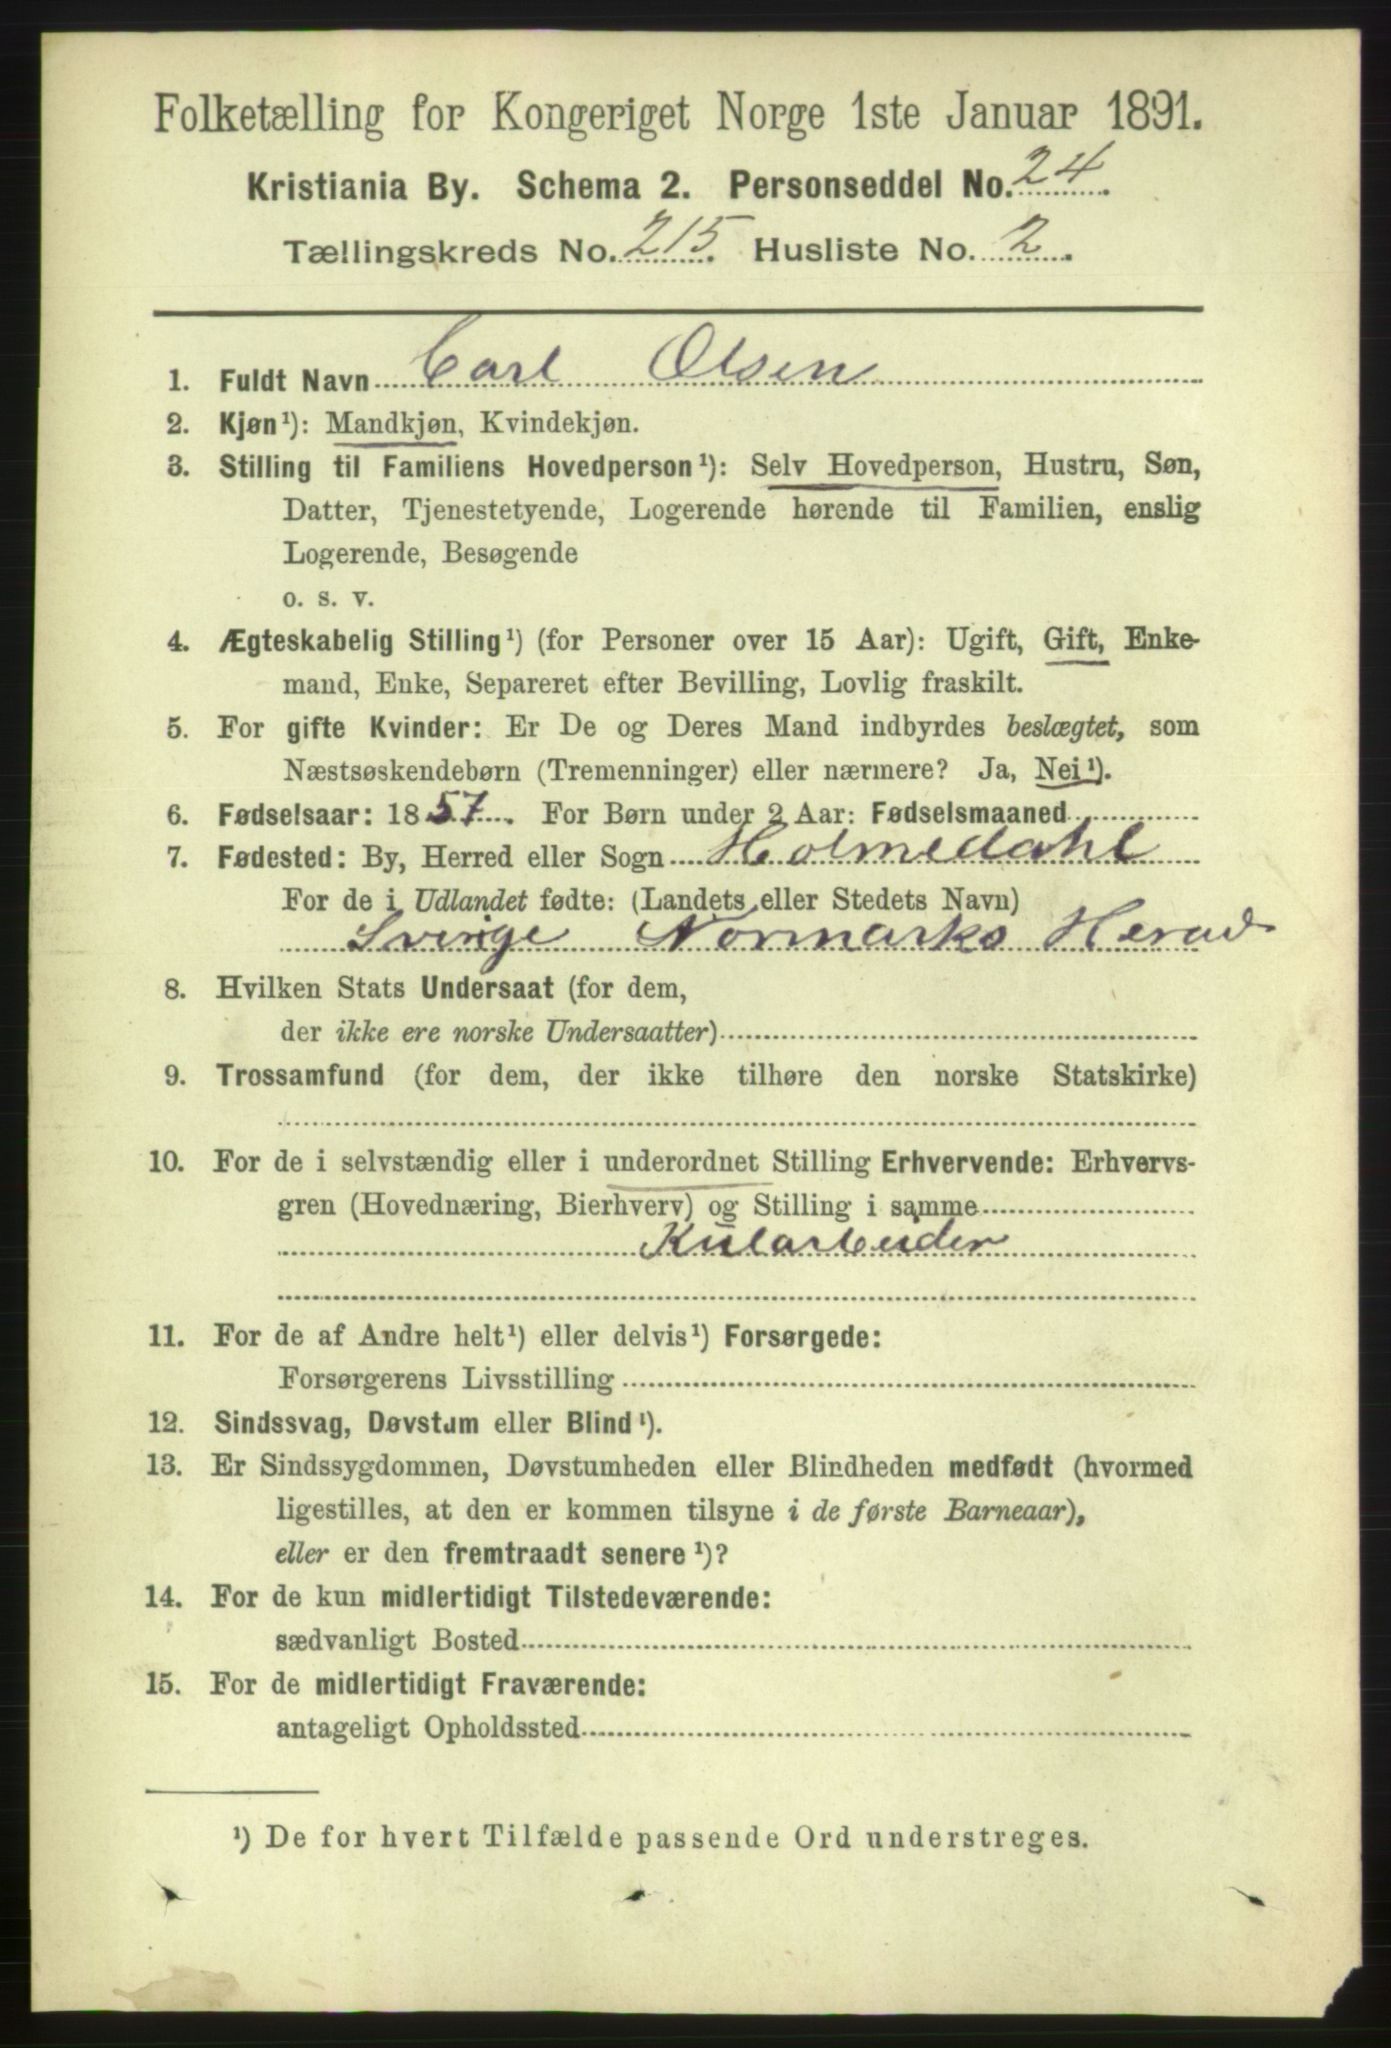 Folketælling for Kongeriget Norge 1ste Januar 1891.
Kristiania By. Schema 2. Personseddel No. 24.
Tællingskreds No. 215. Husliste No. 2.
1. Fuldt Navn Carl Olsen
2. Kjøn¹): Mandkjøn, Kvindekjøn.
3. Stilling til Familiens Hovedperson¹): Selv Hovedperson, Hustru, Søn,
Datter, Tjenestetyende, Logerende hørende til Familien, enslig
Logerende, Besøgende
o. s. v.
4. Ægteskabelig Stilling¹) (for Personer over 15 Aar): Ugift, Gift, Enke-
mand, Enke, Separeret efter Bevilling, Lovlig fraskilt.
5. For gifte Kvinder: Er De og Deres Mand indbyrdes beslægtet, som
Næstsøskendebørn (Tremenninger) eller nærmere? Ja, Nei¹).
6. Fødselsaar: 1857. For Børn under 2 Aar: Fødselsmaaned
7. Fødested: By, Herred eller Sogn Holmedahl
For de i Udlandet fødte: (Landets eller Stedets Navn)
Sverige Normarks Herad
8. Hvilken Stats Undersaat (for dem,
der ikke ere norske Undersaatter)
9. Trossamfund (for dem, der ikke tilhøre den norske Statskirke)
10. For de i selvstændig eller i underordnet Stilling Erhvervende: Erhvervs-
gren (Hovednæring, Bierhverv) og Stilling i samme
Kularbeider
11. For de af Andre helt¹) eller delvis¹) Forsørgede:
Forsørgerens Livsstilling
12. Sindssvag, Døvstum eller Blind¹).
13. Er Sindssygdommen, Døvstumheden eller Blindheden medfødt (hvormed
ligestilles, at den er kommen tilsyne i de første Barneaar),
eller er den fremtraadt senere¹)?
14. For de kun midlertidigt Tilstedeværende:
sædvanligt Bosted
15. For de midlertidigt Fraværende:
antageligt Opholdssted
¹) De for hvert Tilfælde passende Ord understreges.